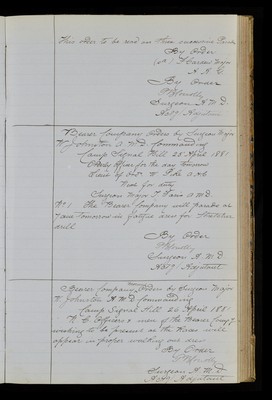 This Order to be read on three successive Parades
By Order
By Order
Surgeon A.M.D.
Actg Adjutant
Bearer Company Orders by Surgeon Major
W. Johnston A.M.D. Commanding
Camp Signal Hill 25 April 1881
Orderly Officer for the day Tomorrow
Next for duty
Surgeon Major
No 1 The Bearer Company will parade at
7 am Tomorrow in fatigue dress for Stretcher
drill
By Order
Surgeon A.M.D
Actg Adjutant
Bearer Company Orders by Surgeon Major
W. Johnston A.M.D Commanding
Camp Signal Hill 26 April 1881
N.C. Officers & men of the Bearer Compy
wishing to be present at the Races will
appear in proper walking out dress
By Order
Surgeon A.M.D.
Actg Adjutant